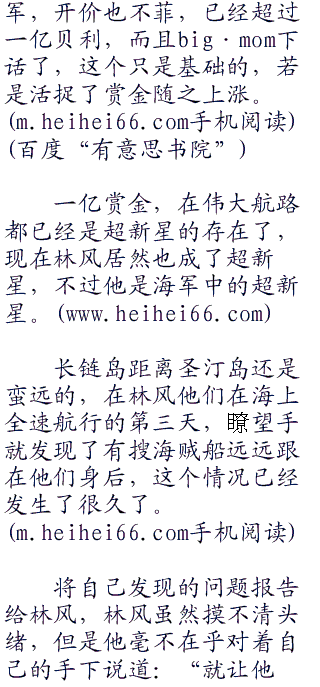 军，开价也不菲，已经超过
一亿贝利，而且big·mom下
话了，这个只是基础的，若
是活捉了赏金随之上涨。
(m.heihei66.com手机阅读)
(百度“有意思书院”)
一亿赏金，在伟大航路
都已经是超新星的存在了，
现在林风居然也成了超新
星，不过他是海军中的超新
星。(www.heihei66.com)
长链岛距离圣汀岛还是
蛮远的，在林风他们在海上
全速航行的第三天，瞭望手
就发现了有搜海贼船远远跟
在他们身后，这个情况已经
发生了很久了。
(m.heihei66.com手机阅读)
将自己发现的问题报告
给林风，林风虽然摸不清头
绪，但是他毫不在乎对着自
己的手下说道：“就让他